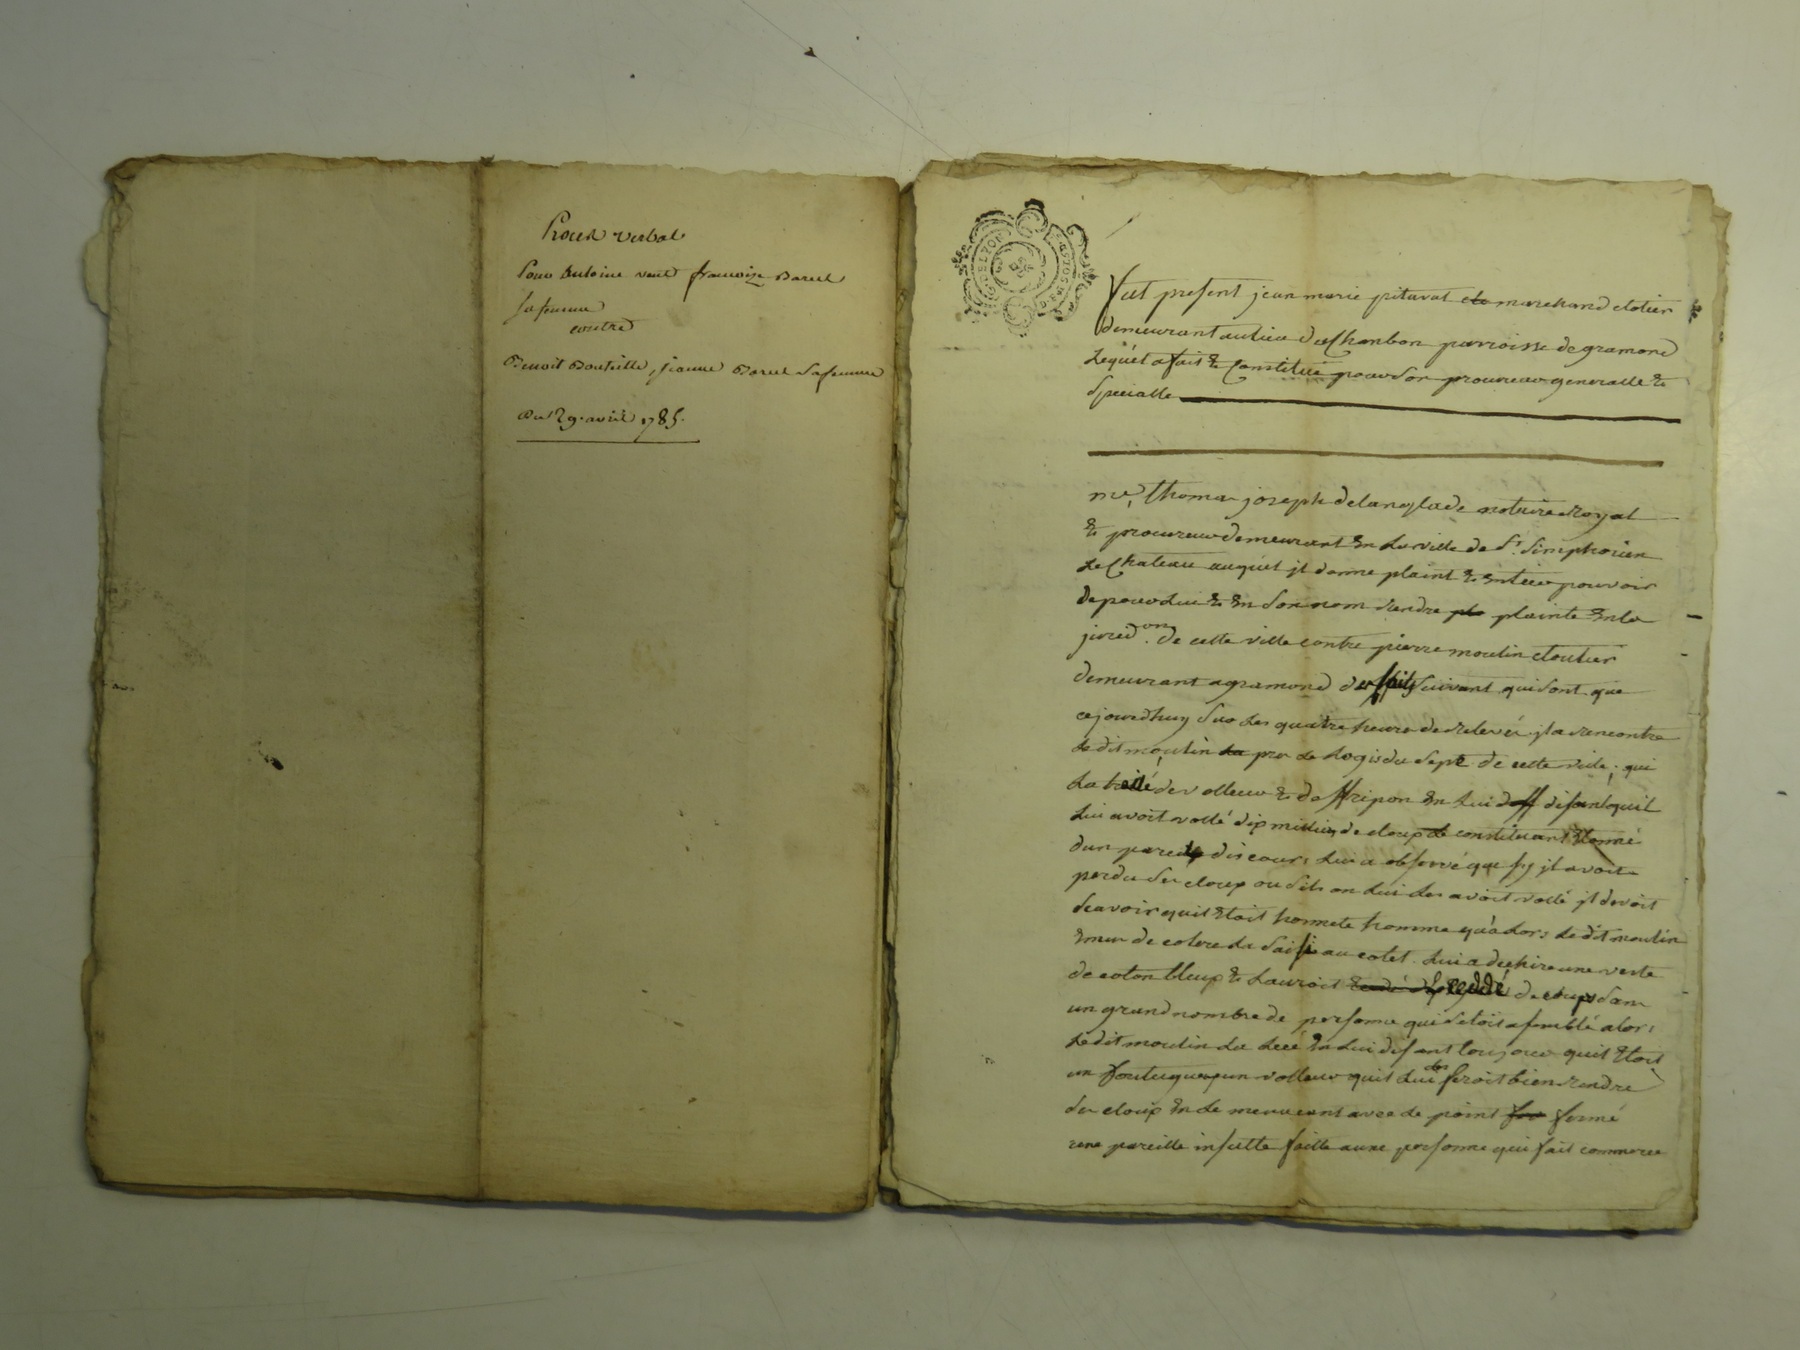 Procès verbal
Pour Antoine venet françoize Barcel
sa femme
contre
Benoit Bouteille, jeanne Barcel sa femme
Du 29. avril 1785.
fut present jean marie pitaval clo marchand clotier
demeurant au lieu du Chanbon parroisse de gramond
Lequel a fait & Constitué pour Son procureur generalle &
Specialle
me, thomas joseph delanglade notaire Royal
& procureur demeurant En La ville de St. Simphorien
Le Chateau auquel jl donne plaint & Entier pouvoir
de pour Lui & En Son nom Rendre pla plainte En la
jurid.on de cette ville contre pierre moulin cloutier
demeurant a gramond des faits Suivant qui Sont que
cejourdhuy Sur Les quatre heure de Relevée jl a Rencontré
Le dit moulin La pres Le Logis du Sept de cette ville ; qui
La traité de volleur & de ffripon En Lui d disant quil
Lui avoit vollé dix millier de cloup Le constituant Etonné
dun pareille discours Lui a observé que sy jl avoit
perdu Ses cloup ou Sils on Lui Les avoit vollé jl devoit
Scavoir quil Etoit honnete homme qu'a Lors Le dit moulin
Emeu de colere La Saisi au colet Lui a dechiré une veste
de coton bleup & Lauroit de coups dans
un grand nombre de personne qui Setoit assemblé alors
Le dit moulin La En Lui disant toujours quil Etoit
un foutu un volleur quil Lui des feroit bien Rendre
Ses cloup En Le menaceant avec Le point for fermé
une pareille insulte faitte a une personne qui fait commerce